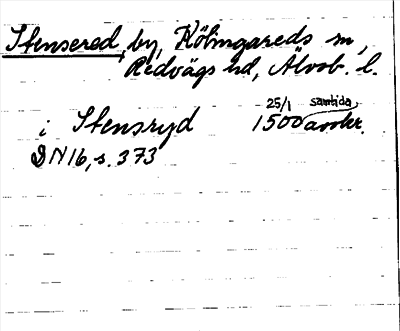 Stensered, by, Kölingareds sn,
Redvägs hd, Älvsb. l.
25/1 samtida
i Stensryd 1500 avskr.
DN 16, s. 373